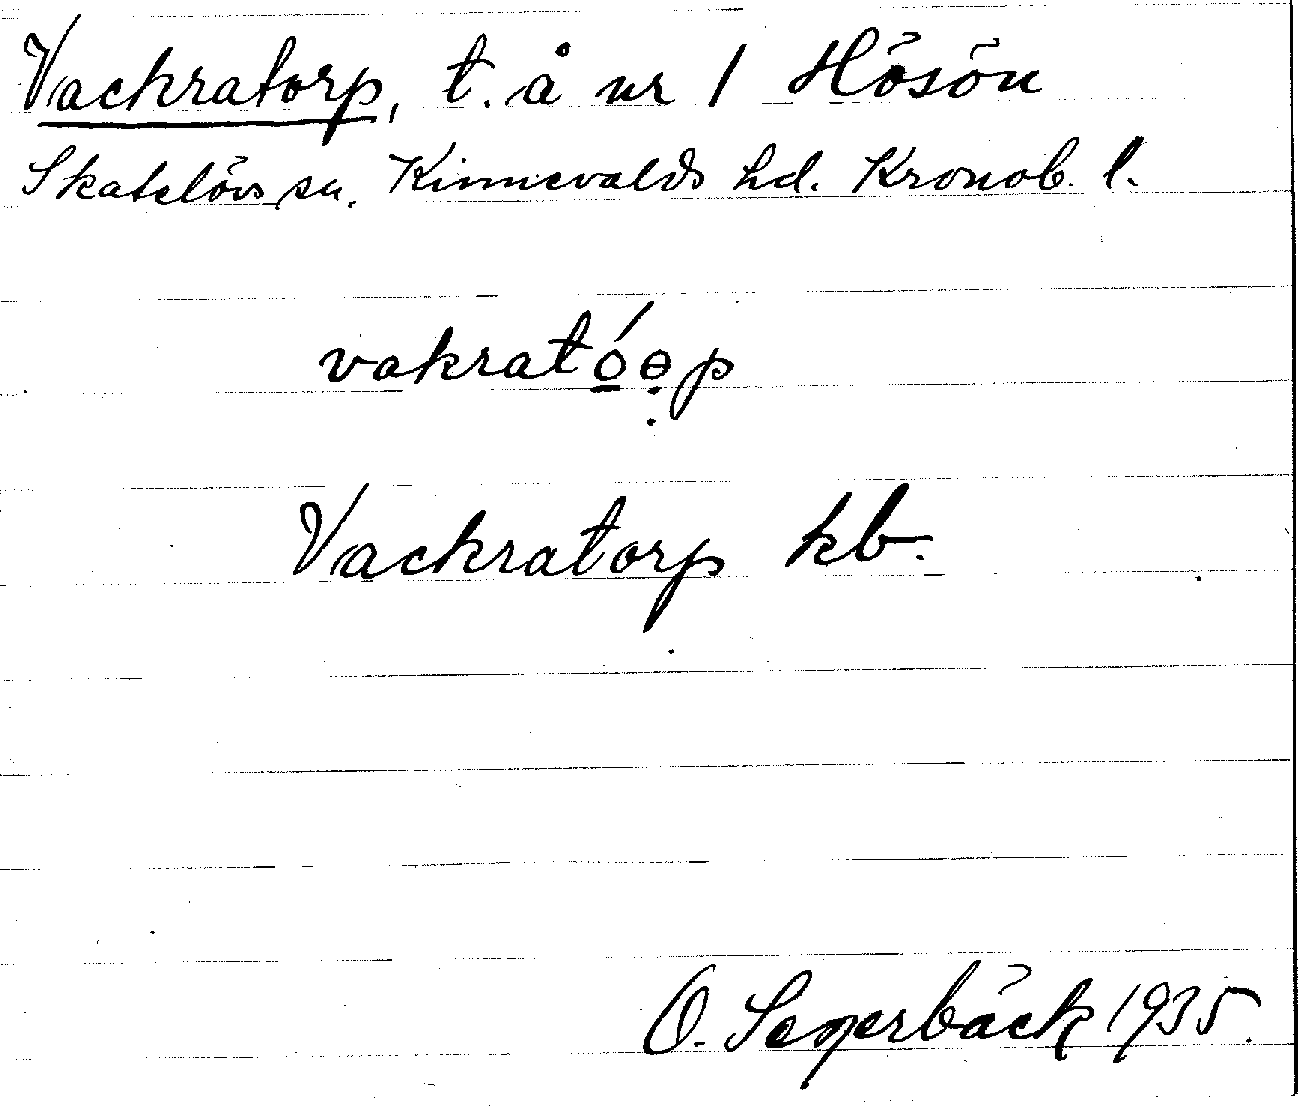 Vackratorp, t. å nr 1 Hösön
Skatelövs sn. Kinnevalds hd. Kronob. l.
vakratóɵ̣p
Vackratorp kb.
O. Segerbäck 1935.